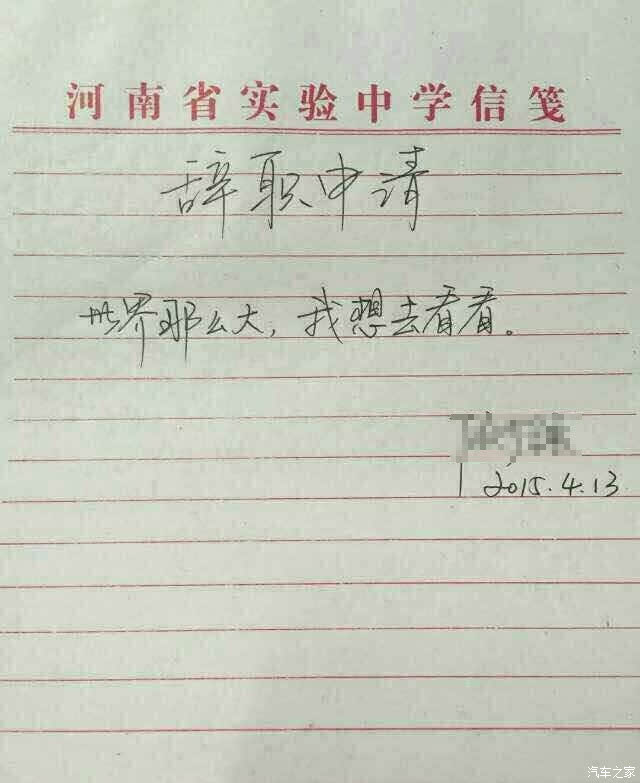 河南省实验中学信笺
辞职申请
世界那么大，我想去看看。
2015.4.13
汽车之家